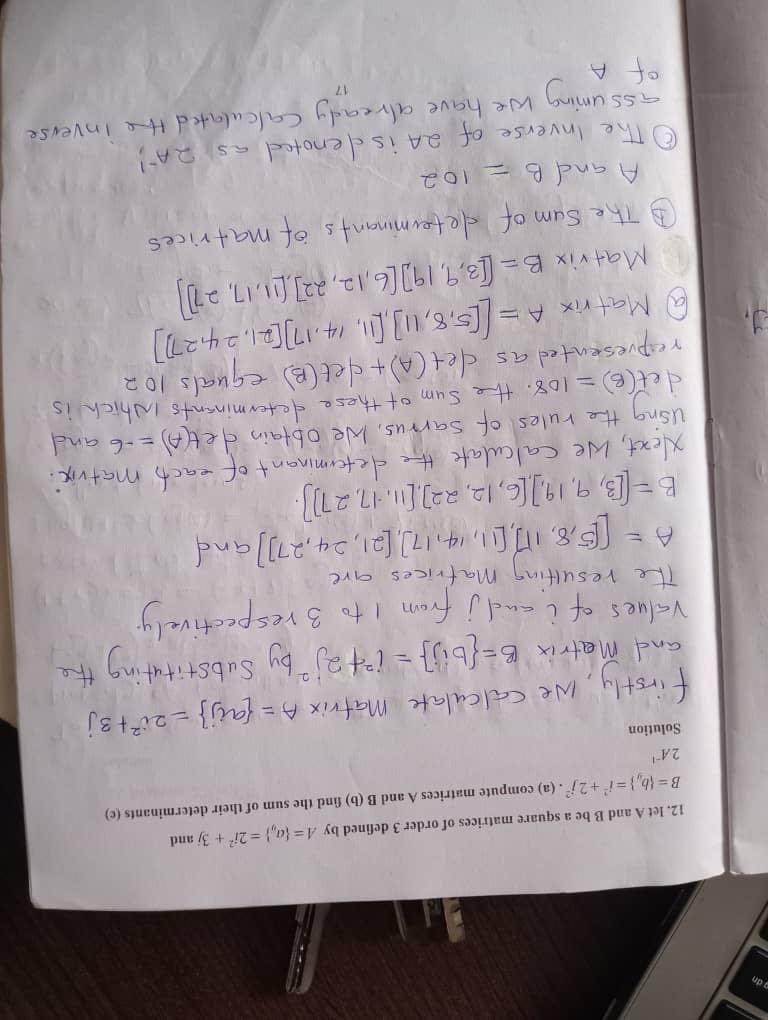 g dn
12. let A and B be a square matrices of order 3 defined by A = {a_ij} = 2i² + 3j and
B = {b_ij} = i² + 2j². (a) compute matrices A and B (b) find the sum of their determinants (c)
2A⁻¹
Solution
firstly, We Calculate Matrix A = {aij} = 2i²+3j
and Matrix B={bij} = i²+2j² by Substituting the
Values of i and j from 1 to 3 respectively.
The resulting Matrices are
A = [[5,8, 11],[11, 14, 17],[21, 24, 27]] and
B=[[3, 9, 19,][6, 12, 22],[11, 17, 27]].
Next, We Calculate the determinant of each matrix.
Using the rules of Sarrus, We obtain det(A) = -6 and
det(B) = 108. the Sum of these determinants Which is
represented as det(A)+det(B) equals 102
(a) Matrix A = [[5,8,11],[11, 14,17][21,24,27]]
Matrix B= [[3,9,19][6,12,22],[11,17,27]]
(B) The Sum of determinants of matrices
A and B = 102
(C) The Inverse of 2A is denoted as 2A⁻¹,
assuming We have already Calculated the inverse
of A
17
y.